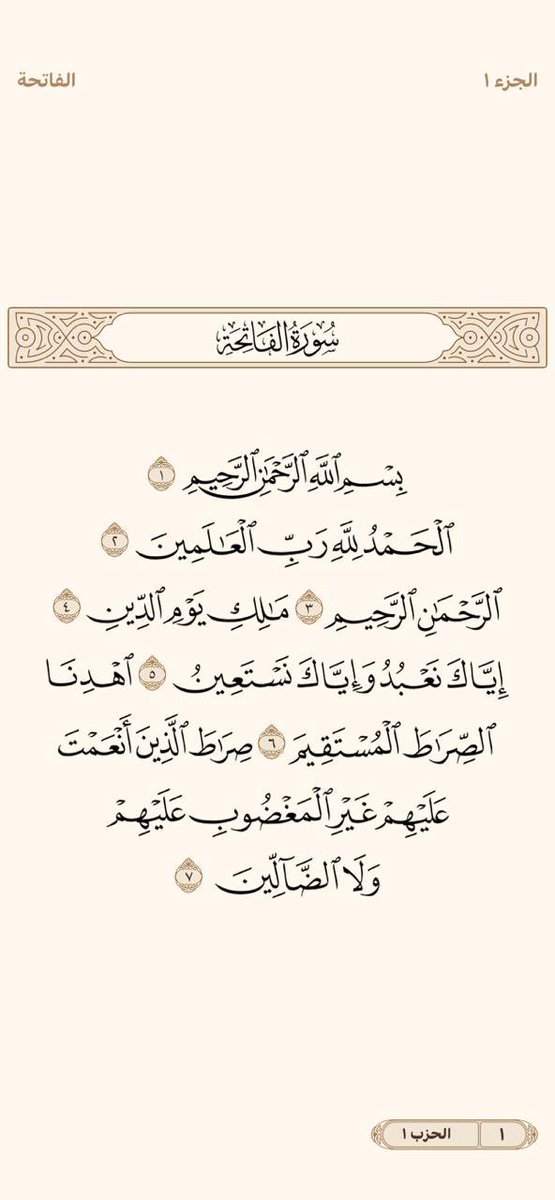 الجزء ١
الفاتحة
سُورَةُ الفَاتِحَة
بِسْمِ ٱللَّهِ ٱلرَّحْمَٰنِ ٱلرَّحِيمِ ١
ٱلْحَمْدُ لِلَّهِ رَبِّ ٱلْعَٰلَمِينَ ٢
ٱلرَّحْمَٰنِ ٱلرَّحِيمِ ٣ مَٰلِكِ يَوْمِ ٱلدِّينِ ٤
إِيَّاكَ نَعْبُدُ وَإِيَّاكَ نَسْتَعِينُ ٥ ٱهْدِنَا
ٱلصِّرَٰطَ ٱلْمُسْتَقِيمَ ٦ صِرَٰطَ ٱلَّذِينَ أَنْعَمْتَ
عَلَيْهِمْ غَيْرِ ٱلْمَغْضُوبِ عَلَيْهِمْ
وَلَا ٱلضَّآلِّينَ ٧
١ الحزب ١